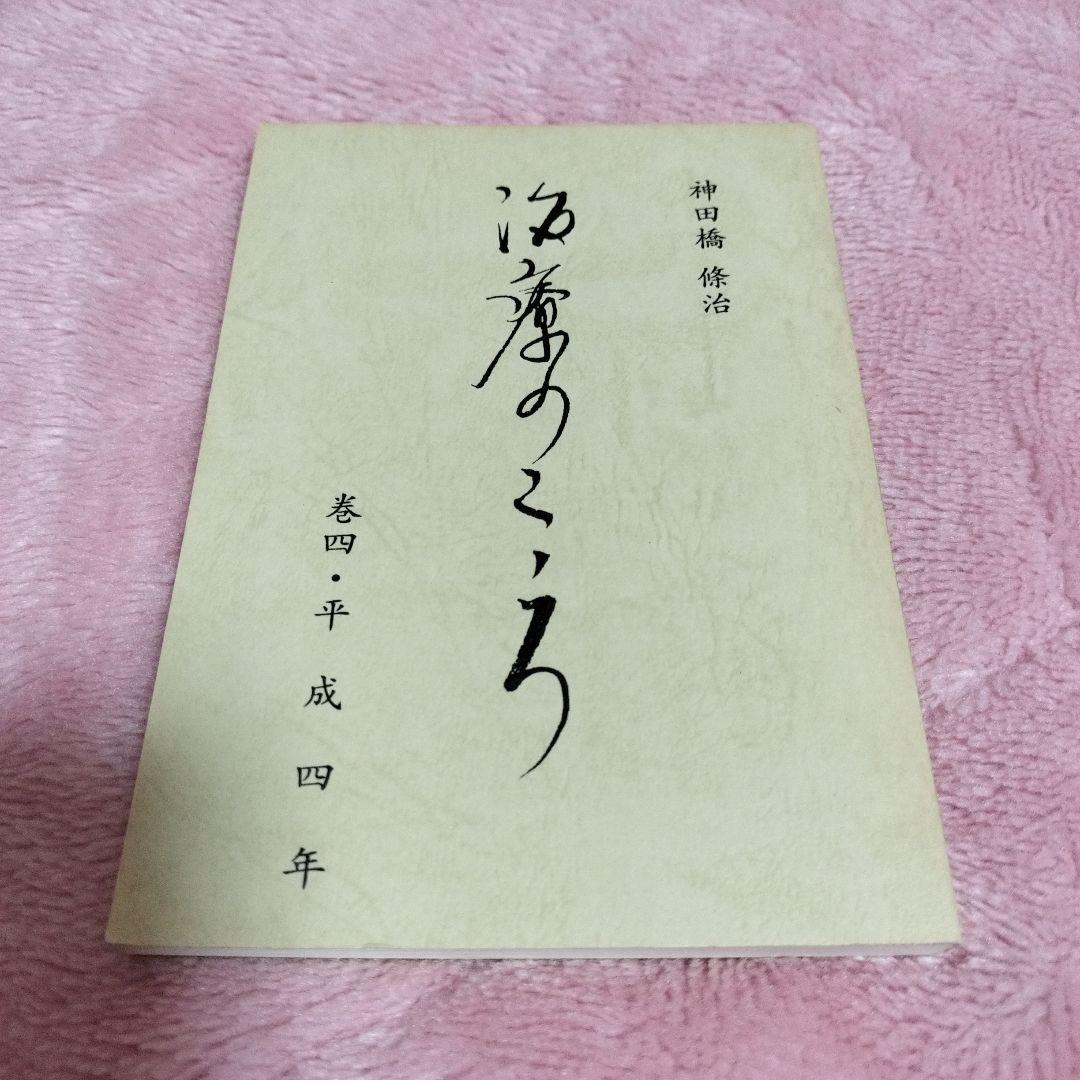 神田橋 條治
治療のこゝろ
巻四・平成四年